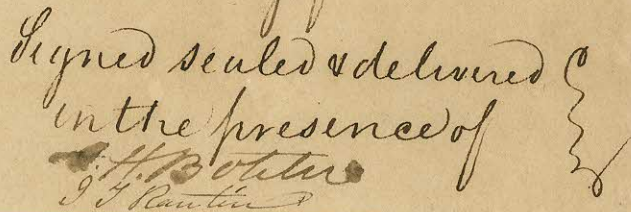 Signed sealed & delivered
in the presence of
H. Bohler
J T Rantin